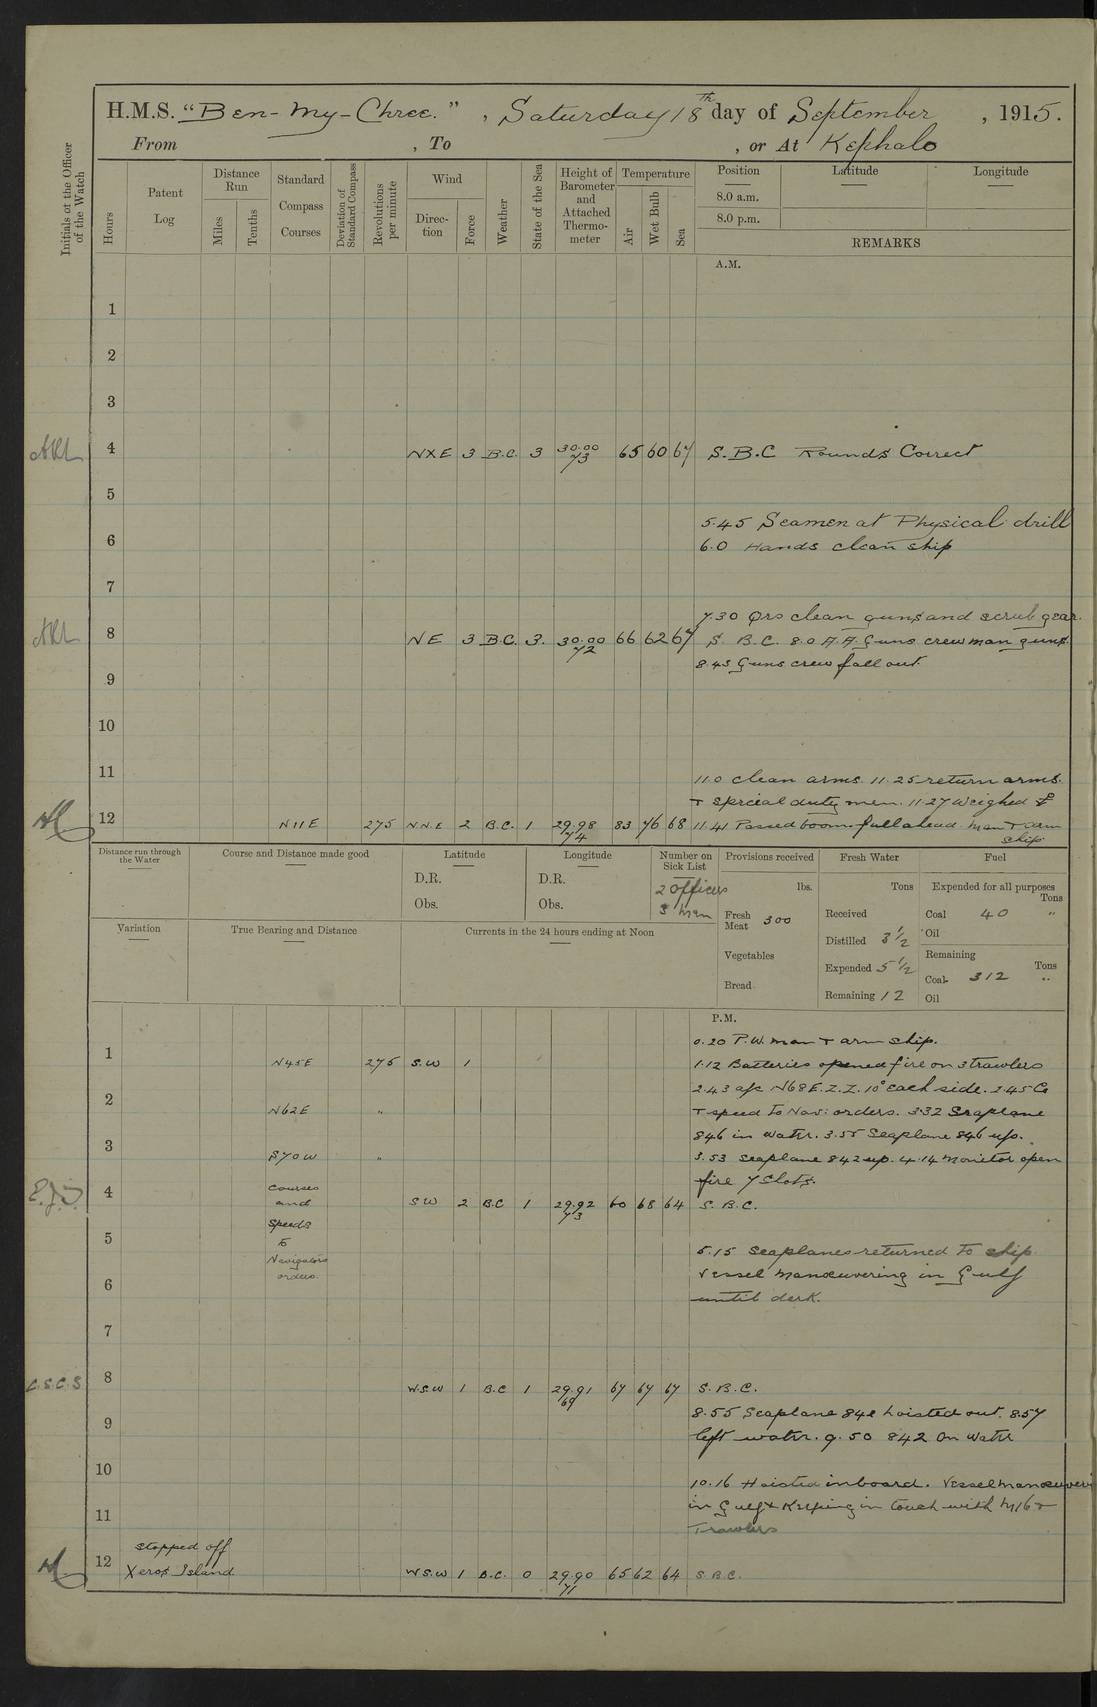 H.M.S. "Ben-My-Chree." , Saturday 18th day of September , 1915.
From , To , or At Kephalo
Initials of the Officer of the Watch
Hours
Patent Log
Distance Run
Miles
Tenths
Standard Compass Courses
Deviation of Standard Compass
Revolutions per minute
Wind
Direc-tion
Force
Weather
State of the Sea
Height of Barometer and Attached Thermo-meter
Temperature
Air
Wet Bulb
Sea
Position Latitude Longitude
8.0 a.m.
8.0 p.m.
REMARKS
A.M.
1
2
3
4 NXE 3 B.C. 3 30.00 73 65 60 67 S.B.C Rounds Correct
5
5.45 Seamen at Physical drill
6 6.0 Hands clean ship
7
7.30 Qrs clean guns and scrub gear.
8 NE 3 B.C. 3. 30.00 72 66 62 67 S. B.C. 8.0 A.A. Guns crew man guns.
8.45 Guns crew fall out.
9
10
11 11.0 clean arms. 11.25 return arms.
+ special duty men. 11.27 Weighed &
12 N11E 275 N.N.E 2 B.C. 1 29.98 74 83 76 68 11.41 Passed boom. full ahead. man + arm
ship.
Distance run through the Water
Course and Distance made good
Latitude
D.R.
Obs.
Longitude
D.R.
Obs.
Number on Sick List
2 Officers
3 Men
Provisions received
lbs.
Fresh Meat 300
Vegetables
Bread
Fresh Water
Tons
Received
Distilled 3 1/2
Expended 5 1/2
Remaining 12
Fuel
Expended for all purposes
Tons
Coal 40 "
Oil
Remaining
Tons
Coal 312 "
Oil
Variation
True Bearing and Distance
Currents in the 24 hours ending at Noon
P.M.
0.20 P.W. man + arm ship.
1 N45E 275 S.W 1 1.12 Batteries opened fire on 3 trawlers
2.43 a/c N68E. Z.Z. 10° each side. 2.45 Co
2 N62E " + speed to Nav: orders. 3.32 Seaplane
846 in water. 3.55 Seaplane 846 up.
3 S70W " 3.53 Seaplane 842 up. 4.14 Monitor open
fire 7 Shots.
4 Courses and S W 2 B.C 1 29.92 73 60 68 64 S. B.C.
Speeds
5 to
Navigators 5.15 Seaplanes returned to ship.
orders. Vessel manoeuvering in Gulf
6 until dark.
7
8 W.S.W 1 B.C 1 29.91 69 67 67 67 S. B.C.
8.55 Seaplane 842 hoisted out. 8.57
9 left water. 9.50 842 On Water
10 10.16 Hoisted inboard. Vessel manoeuveri
11 in Gulf + Keeping in touch with M16 +
Trawlers
stopped off
12 Xeros Island W S.W 1 B.C. 0 29.90 71 65 62 64 S.B.C.
E.J.S
C.S.C.S